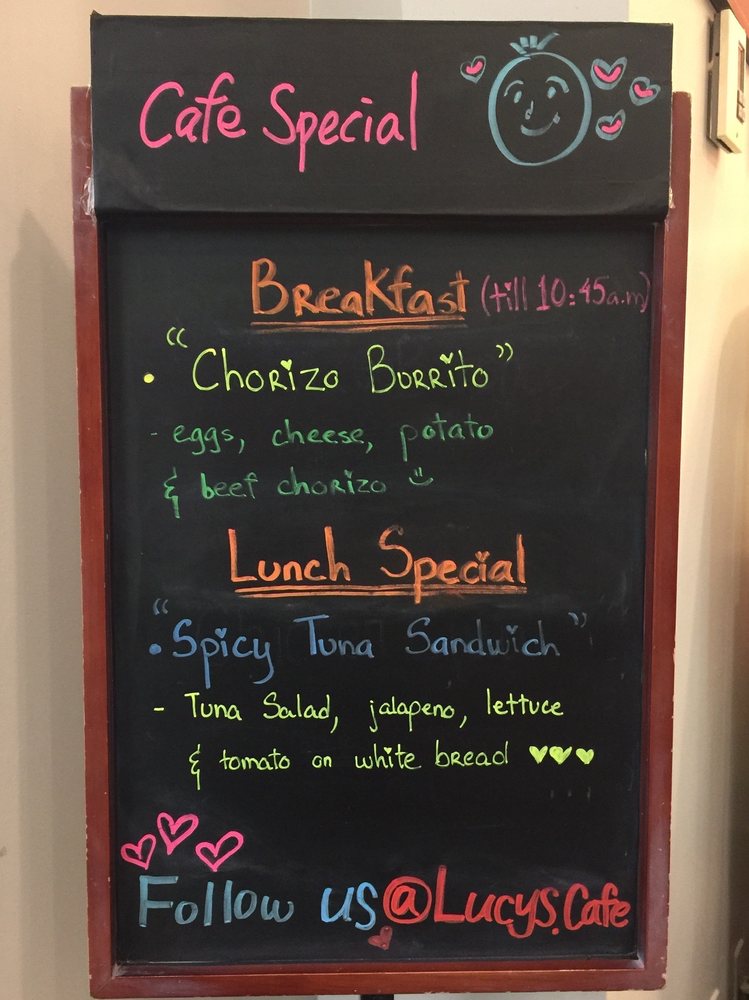 Cafe Special
Breakfast (till 10:45a.m)
• "Chorizo Burrito"
- eggs, cheese, potato
& beef chorizo
Lunch Special
• "Spicy Tuna Sandwich"
- Tuna Salad, jalapeno, lettuce
& tomato on white bread
Follow us @Lucys.Cafe